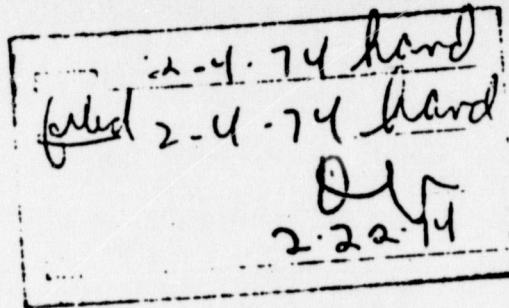 2-4-74 hand
filed 2-4-74 hand
2-22-74